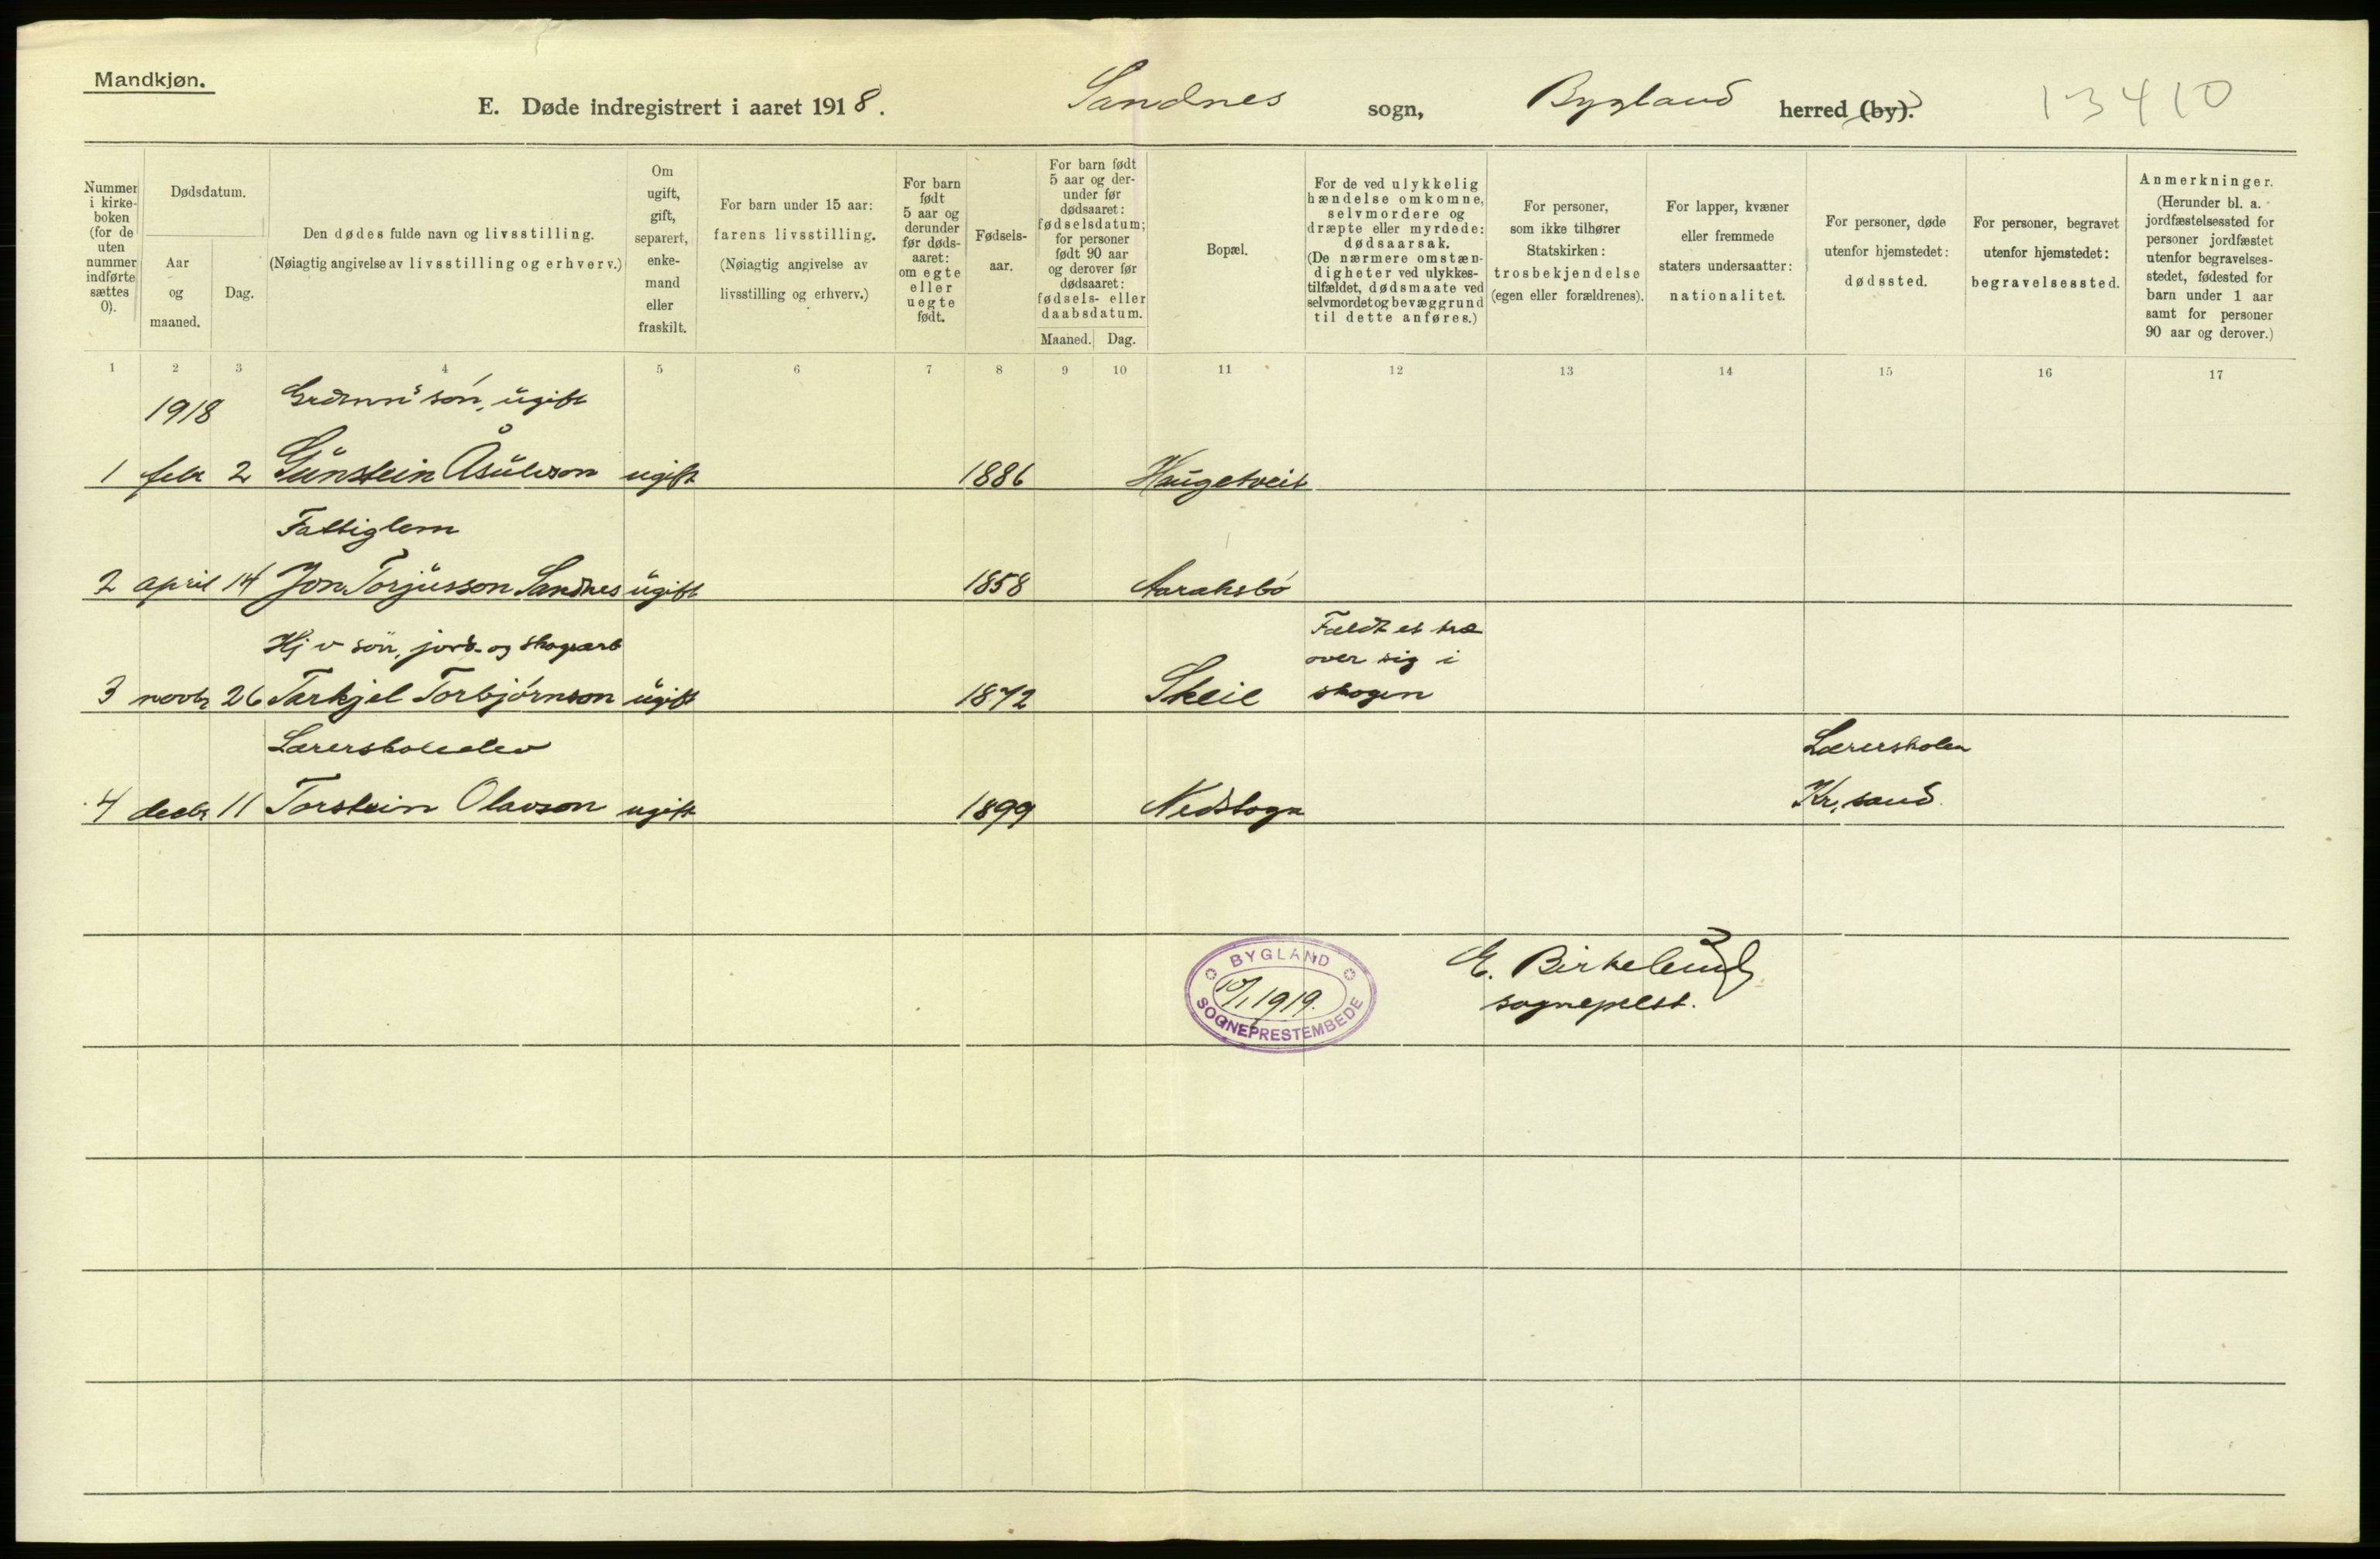 Mandkjøn.
E. Døde indregistrert i aaret 1918. Sandnes sogn, Bygland herred (by). 13410
Nummer i kirke- boken (for de uten nummer indførte sættes 0).
Dødsdatum.
Aar og maaned.
Dag.
Den dødes fulde navn og livsstilling.
(Nøiagtig angivelse av livsstilling og erhverv.)
Om ugift, gift, separert, enke- mand eller fraskilt.
For barn under 15 aar: farens livsstilling. (Nøiagtig angivelse av livsstilling og erhverv.)
For barn født 5 aar og derunder før døds- aaret: om egte eller uegte født.
Fødsels- aar.
For barn født 5 aar og der- under før dødsaaret: fødselsdatum; for personer født 90 aar og derover før dødsaaret: fødsels- eller daabsdatum.
Maaned. Dag.
Bopæl.
For de ved ulykkelig hændelse omkomne, selvmordere og dræpte eller myrdede: dødsaarsak. (De nærmere omstæn- digheter ved ulykkes- tilfældet, dødsmaate ved selvmordet og bevæggrund til dette anføres.)
For personer, som ikke tilhører Statskirken: trosbekjendelse (egen eller forældrenes).
For lapper, kvæner eller fremmede staters undersaatter: nationalitet.
For personer, døde utenfor hjemstedet: dødssted.
For personer, begravet utenfor hjemstedet: begravelsessted.
Anmerkninger. (Herunder bl. a. jordfæstelsessted for personer jordfæstet utenfor begravelses- stedet, fødested for barn under 1 aar samt for personer 90 aar og derover.)
1 2 3 4 5 6 7 8 9 10 11 12 13 14 15 16 17
1918 søn, ugift
1 febr 2 Gunstein Åsulvson ugift 1886 Haugetveit
Fattiglem
2 april 14 Jon Torjusson Sandnes ugift 1858 Aaraksbø
Hj v søn, jord- og skogsarb
3 novbr 26 Tarkjel Torbjørnson ugift 1872 Skeie
Fældt et træ
over sig i
skogen
Lærerskoleelev
4 decbr 11 Torstein Olavson ugift 1899 Nedstogn
Lærerskolen
Kr.sand.
BYGLAND
10/1 1919.
SOGNEPRESTEMBEDE
E. Birkelund
sogneprest.